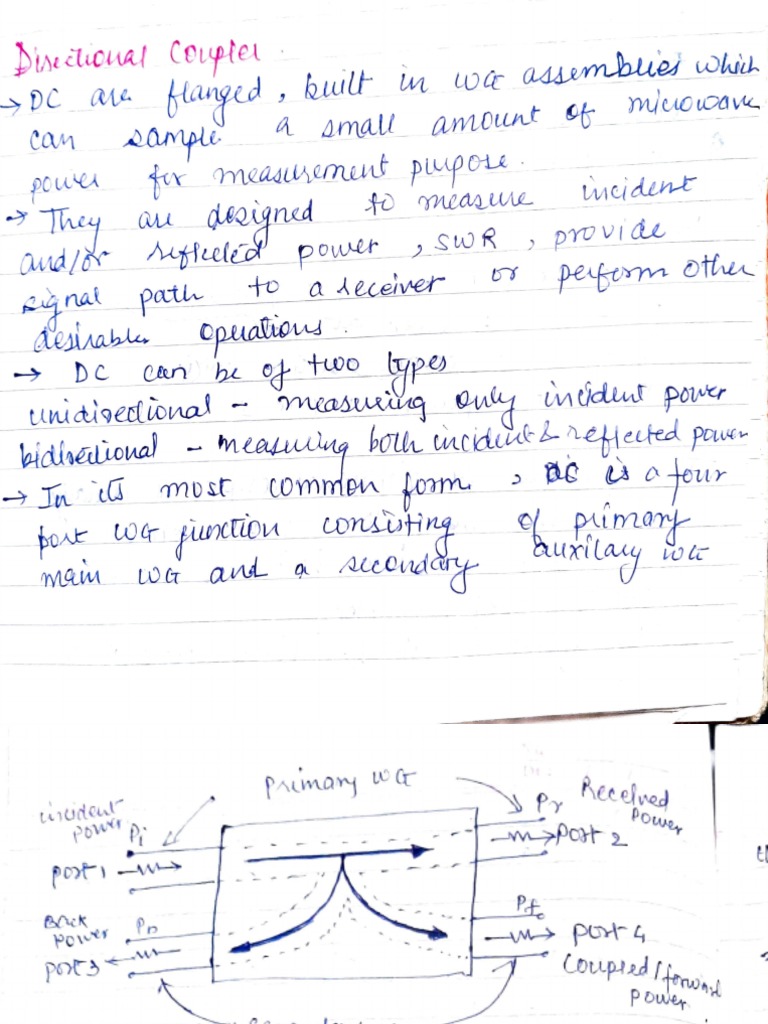 Directional Coupler.
→ DC are flanged, built in WG assemblies which
can sample a small amount of microwave
power for measurement purpose.
→ They are designed to measure incident
and/or reflected power, SWR, provide
signal path to a receiver or perform other
desirable operations.
→ DC can be of two types
unidirectional - measuring only incident power
bidirectional - measuring both incident & reflected power
→ In its most common form, DC is a four
port WG junction consisting of primary
main WG and a secondary auxilary WG
Primary WG
incident power Pi
port 1
Pr Received power
port 2
Back power Pb
port 3
Pf
port 4
Coupled/forward power